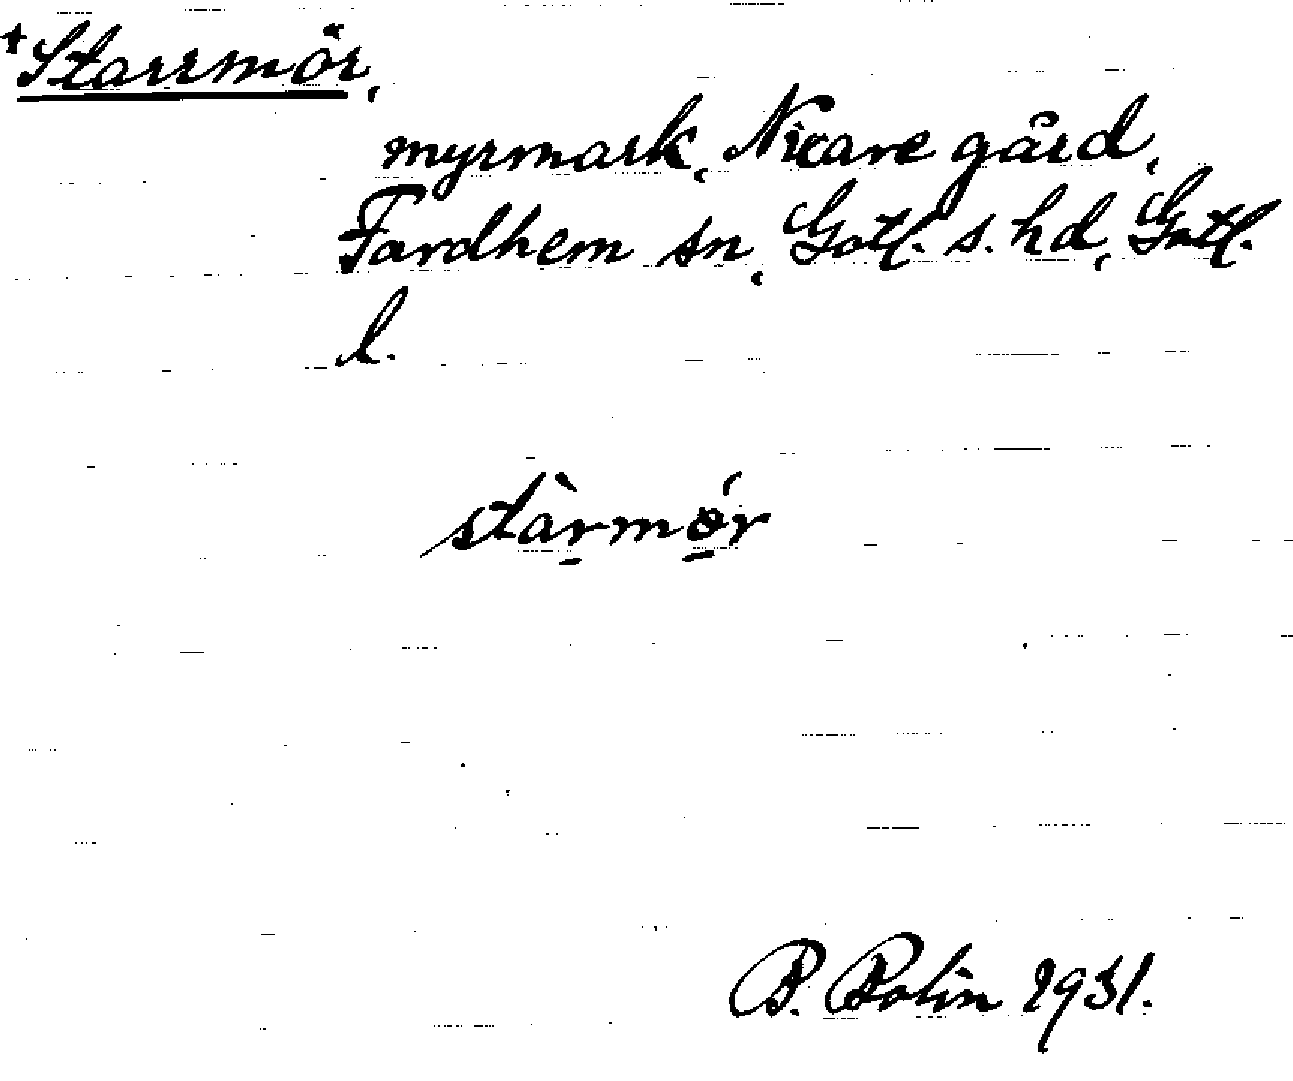 +Starrmör,
myrmark, Nicare gård,
Fardhem sn, Gotl. s. hd, Gotl.
l.
stàrmǿr
B. Bolin 1931.